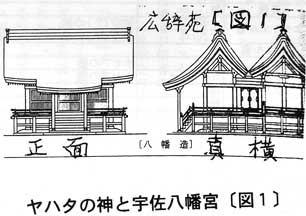 広辞苑〔図1〕
正面
〔八幡造〕
真横
ヤハタの神と宇佐八幡宮〔図1〕